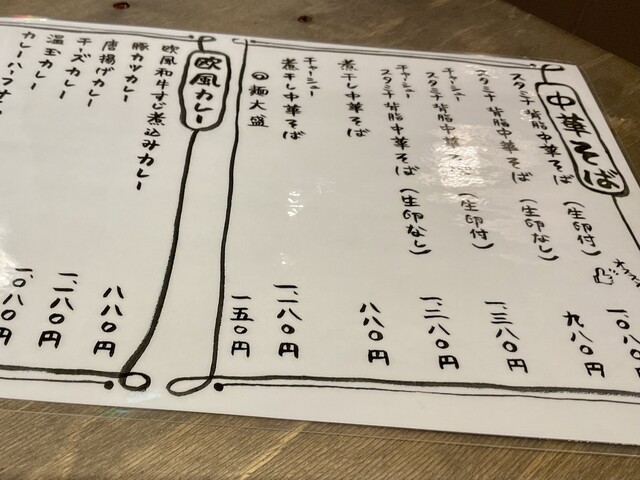 中華そば
スタミナ背脂中華そば(生卵付)
オススメ
一、〇八〇
スタミナ背脂中華そば(生卵なし)
九八〇円
チャーシュー
スタミナ背脂中華そば(生卵付)
一、三八〇円
チャーシュー
スタミナ背脂中華そば(生卵なし)
一、二八〇円
煮干し中華そば
八八〇円
チャーシュー
煮干し中華そば
一、一八〇円
◎麺大盛
一五〇円
欧風カレー
欧風和牛すじ煮込みカレー
八八〇円
豚カツカレー
一、一八〇円
唐揚げカレー
一、〇八〇円
チーズカレー
温玉カレー
カレーハーフサ